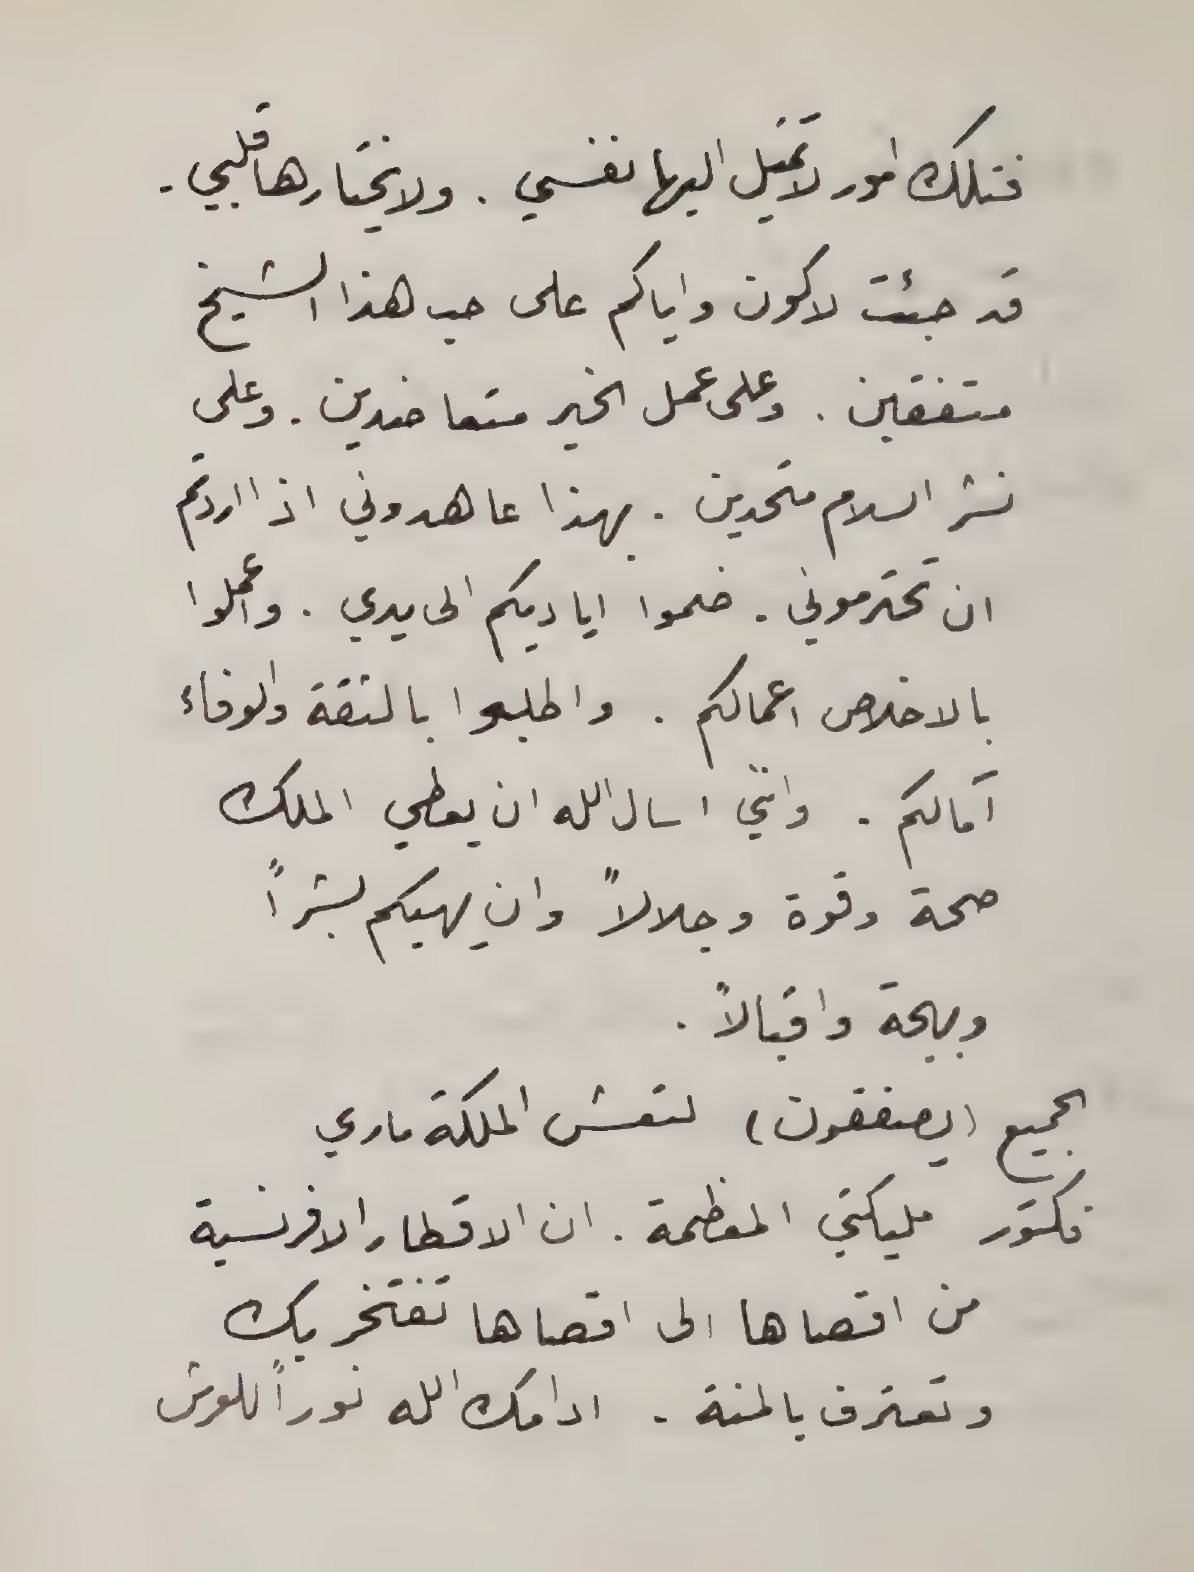 فتلك امور لا تميل اليها نفسي . ولا يختارها قلبي .
قد جئت لاكون واياكم على حب هذا الشيخ
متفقين . وعلى عمل الخير متعاضدين . وعلى
نشر السلام متحدين . بهذا عاهدوني اذا اردتم
ان تحترموني . ضموا اياديكم الى يدي . واعملوا
بالاخلاص اعمالكم . واطلبوا بالثقة والوفاء
آمالكم . وانني اسال الله ان يعطي الملك
صحة وقوة وجلالاً وان يهبكم بشراً
وبهجة واقبالاً .
الجميع (يصفقون) لتعش الملكة ماري
فكتور مليكتي المعظمة . ان الاقطار الافرنسية
من اقصاها الى اقصاها تفتخر بك
وتعترف بالمنة . ادامك الله نوراً للعرش